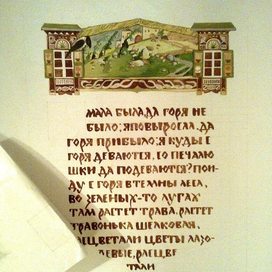 МАЛА БЫЛА, ДА ГОРЯ НЕ
БЫЛО; Я ПОВЫРОСЛА, ДА
ГОРЯ ПРИБЫЛО; Я КУДЫ С
ГОРЯ ДЕВАЮТСЯ, СО ПЕЧАЛЮ
ШКИ ДА ПОДЕВАЮТСЯ? ПОЙ
ДУ С ГОРЯ В ТЕМНЫ ЛЕСА,
ВО ЗЕЛЕНЫХ-ТО ЛУГАХ
ТАМ РАСТЕТ ТРАВА. РАСТЕТ
ТРАВОНЬКА ШЕЛКОВАЯ,
РАСЦВЕТАЛИ ЦВЕТЫ ЛАЗО-
РЕВЫЕ, РАСЦВЕ
ТАЛИ